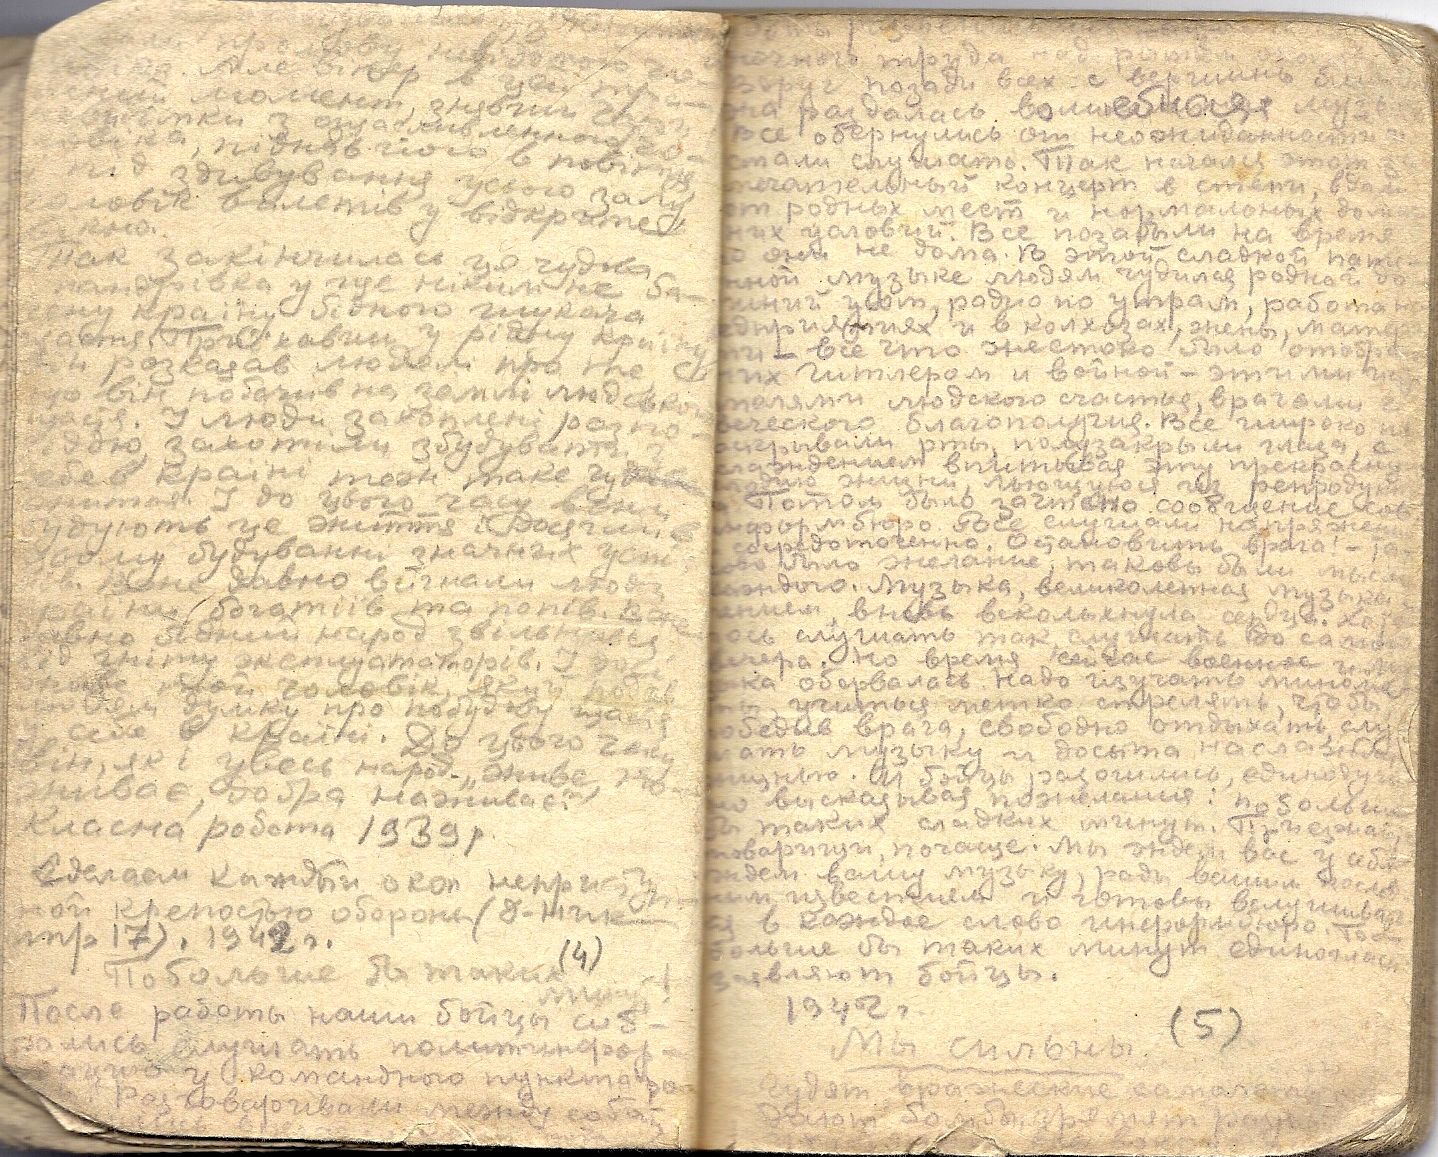 промову невідомою
Але вітер в цей
момент, знявши
з оща
ловіка, піднявши його в повітря
під здивування усього залу
ловік вилетів у відкрите
вікно.
Так закінчилась ця чудна
мандрівка у ще ніким не ба-
чену країну бідного шукача
щастя. Приїхавши у рідну країну
він розказав людям про те
що він побачив на землі людського
щастя. І люди захоплені розпо-
віддю, захотіли збудувати у
себе в країні тож таке чудове
життя. І до цього часу вони
будують це життя і досягли в
своєму будуванні значних успі-
хів. Вже давно вигнали люди
країни богатіїв та попів. Вже
давно бідний народ звільнився
від гніту эксплуататорів. І
живе той чоловік, який подав
людям думку про побудову щастя
у себе в країні. До цього часу
він, як і увесь народ „живе, по-
живає, добра наживає"
Класна робота 1939р.
Сделаем каждый окоп неприступ-
ной крепостью обороны (Д-
17). 1942 г.
(4)
Побольше бы таких
минут!
После работы наши бойцы соб-
рались слушать политинфор-
мацию у командного пункта
Разговаривали между собой
труда над рытьём
Вдруг позади всех с вершины
раздалась волшебная музы-
Все обернулись от неожиданности и
стали слушать. Так начался этот за-
мечательный концерт в степи, вдали
от родных мест и нормальных домаш-
них условий. Все позабыли на время
что они не дома. В этой сладкой
музыке людям чудился родной до-
машний уют, радио по утрам, работа на
предприятиях и в колхозах, жены, матери
— все что жестоко было отобрано
у них Гитлером и войной — этими
людского счастья, врагами че-
ловеческого благополучия. Все широко
раскрывали рты, полузакрыли глаза, с
наслаждением впитывая эту прекрасную
мелодию жизни, льющуюся из репродукто-
ра. Потом было зачтено сообщение Сов-
информбюро. Все слушали напряженно
и сосредоточенно. Остановить врага! — та-
ково было желание, таковы были мысли
каждого. Музыка, великолепная музыка
вновь всколыхнула сердца. Хоте-
лось слушать так, слушать до самого
вечера. Но время сейчас военное и му-
зыка оборвалась. Надо изучать миномё-
ты, учиться метко стрелять, чтобы
победив врага, свободно отдыхать, слу-
шать музыку и досыта наслаждаться
жизнью. И бойцы разошлись, единодуш-
но высказывая пожелания: побольше
бы таких сладких минут. Приезжайте
товарищи, почаще. Мы ждём вас у себя
ждем вашу музыку, рады вашим послед-
ним известиям и готовы вслушивать-
ся в каждое слово информбюро. По-
больше бы таких минут единогласно
заявляют бойцы.
1942 г.
(5)
Мы сильны.
Гудят вражеские самолёты